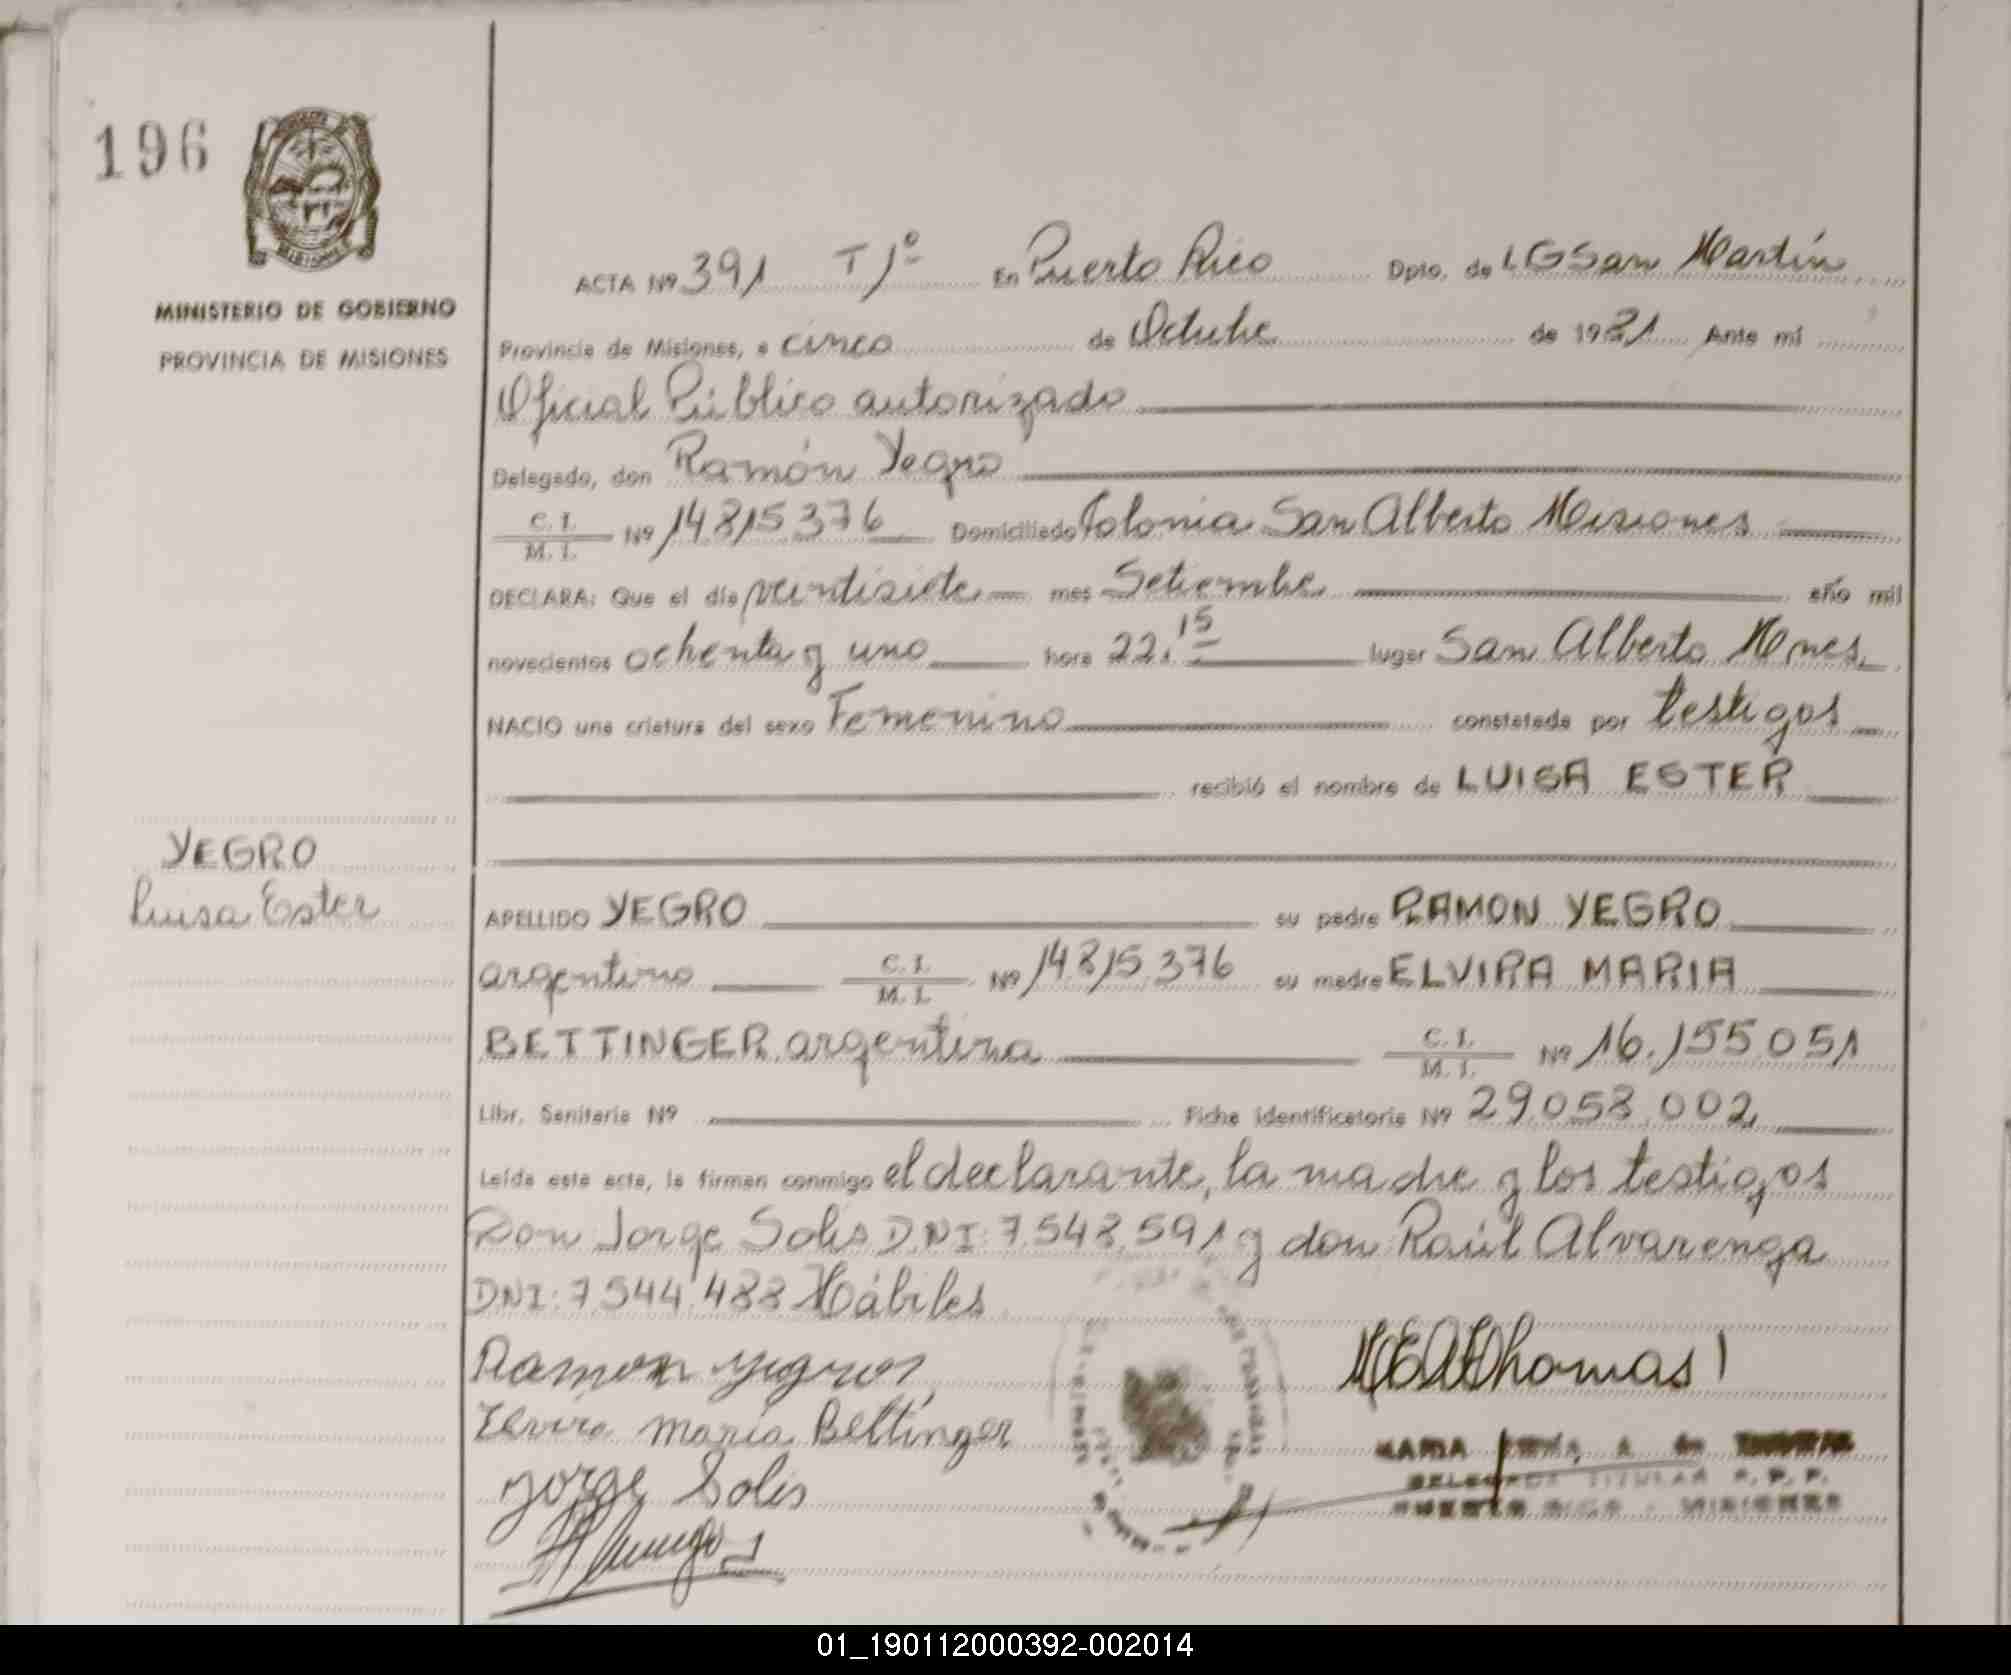 196
MINISTERIO DE GOBIERNO
PROVINCIA DE MISIONES
ACTA Nº 391 T 1º En Puerto Rico Dpto. de LGSan Martín
Provincia de Misiones, a cinco de Octubre de 1981 Ante mi
Oficial Público autorizado
Delegado, don Ramón Yegro
C. I. / M. I. Nº 14.815.376 Domiciliado Colonia San Alberto Misiones
DECLARA: Que el día veintisiete mes Setiembre año mil
novecientos ochenta y uno hora 22.15 lugar San Alberto Mnes.
NACIO una criatura del sexo Femenino constatada por testigos
recibió el nombre de LUISA ESTER
YEGRO
Luisa Ester
APELLIDO YEGRO su padre RAMON YEGRO
argentino C. I. / M. I. Nº 14.815.376 su madre ELVIRA MARIA
BETTINGER argentina C. I. / M. I. Nº 16.155.051
Libr. Sanitaria Nº Ficha identificatoria Nº 29.058.002
Leída esta acta, la firman conmigo el declarante, la madre y los testigos
Don Jorge Solis D.N.I: 7.548.591 y don Raúl Alvarenga
DNI: 7.544.488 Hábiles
Ramon yegros
Elvira maria Bettinger
Jorge Solis
MARIA A. de
DELEGADA TITULAR R. P. P.
PUERTO RICO - MISIONES
01_190112000392-002014